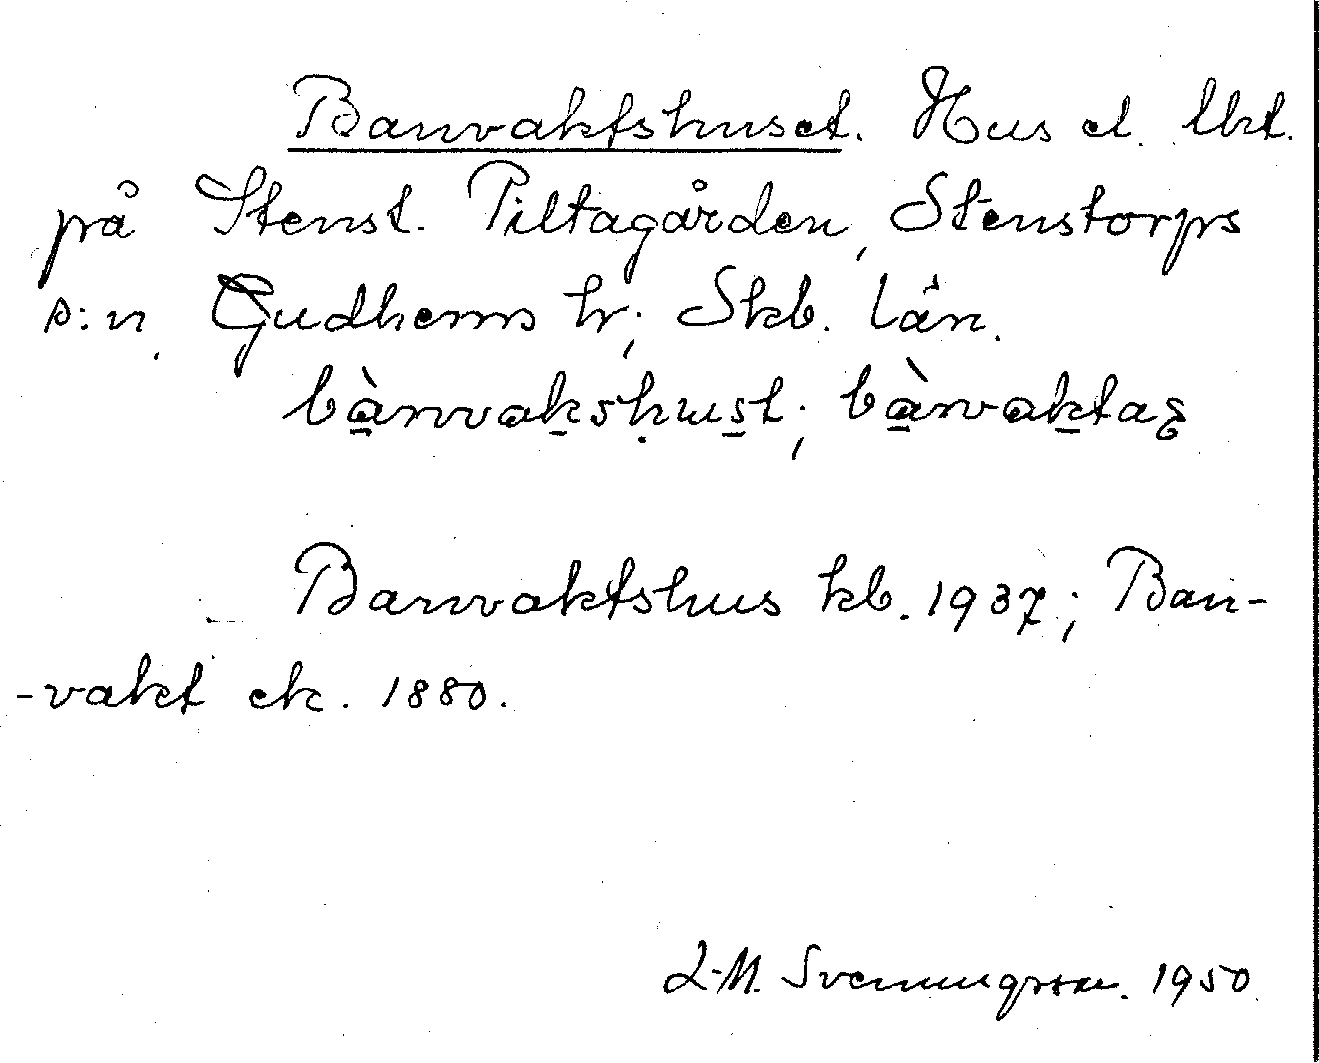 Banvaktshuset. Hus el. lht.
på Stenst. Piltagården, Stenstorps
s:n, Gudhems hr; Skb. län.
bànvakshust; bànvaktaʒ
Banvaktshus kb. 1937; Ban-
-vakt ek. 1880.
L-M. Svenungsson. 1950.